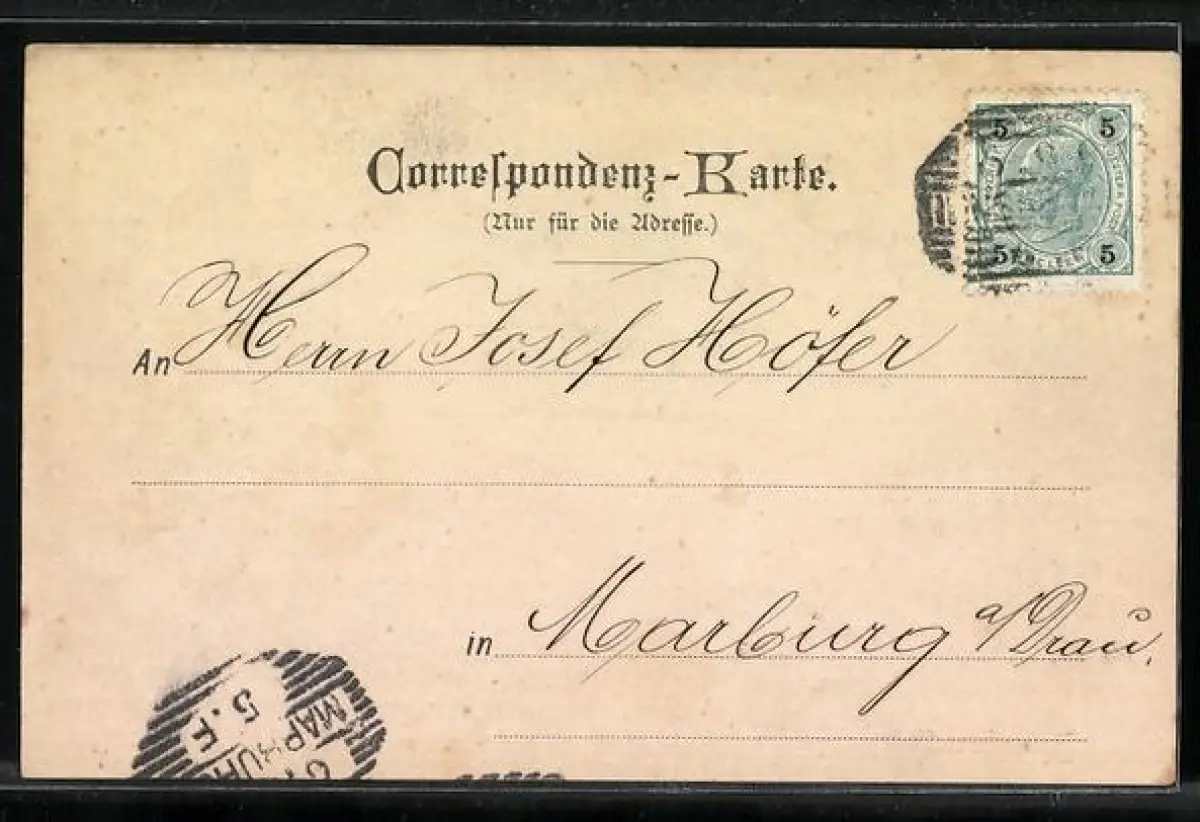 Correspondenz-Karte.
(Nur für die Adresse.)
5 5
5 5
An Herrn Josef Höfer
in Marburg a/Drau,
5. F
MARBURG